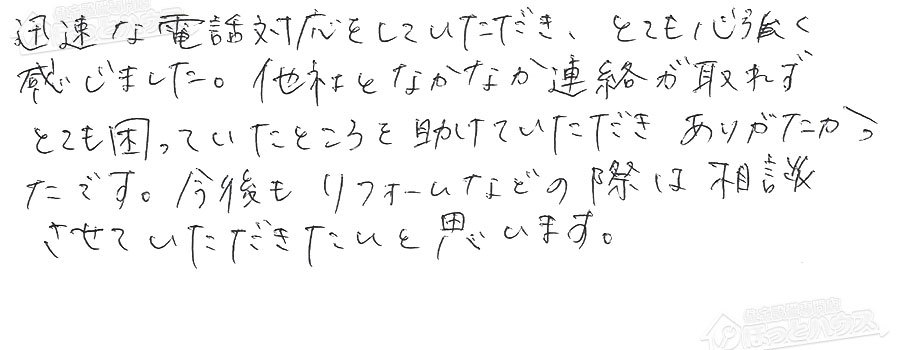 迅速な電話対応をしていただき、とても心強く
感じました。他社となかなか連絡が取れず
とても困っていたところを助けていただき ありがたかっ
たです。今後も リフォームなどの際は相談
させていただきたいと思います。
住宅設備専門店
ほっとハウス